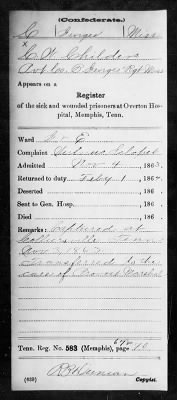 (Confederate.)
C Georges Miss
C. W. Childers
Appears on a
Register
of the sick and wounded prisoners at Overton Hos-
pital, Memphis, Tenn.
Ward
Complaint
Admitted Nov 4, 1863.
Returned to duty Feby 1, 1864
Deserted , 186
Sent to Gen. Hosp. , 186
Died , 186
Remarks: Captured at
Colliersville Tenn
1863
Transferred to the
care of Provost Marshal
Tenn. Reg. No. 583 (Memphis), page 10
(639) Copyist.